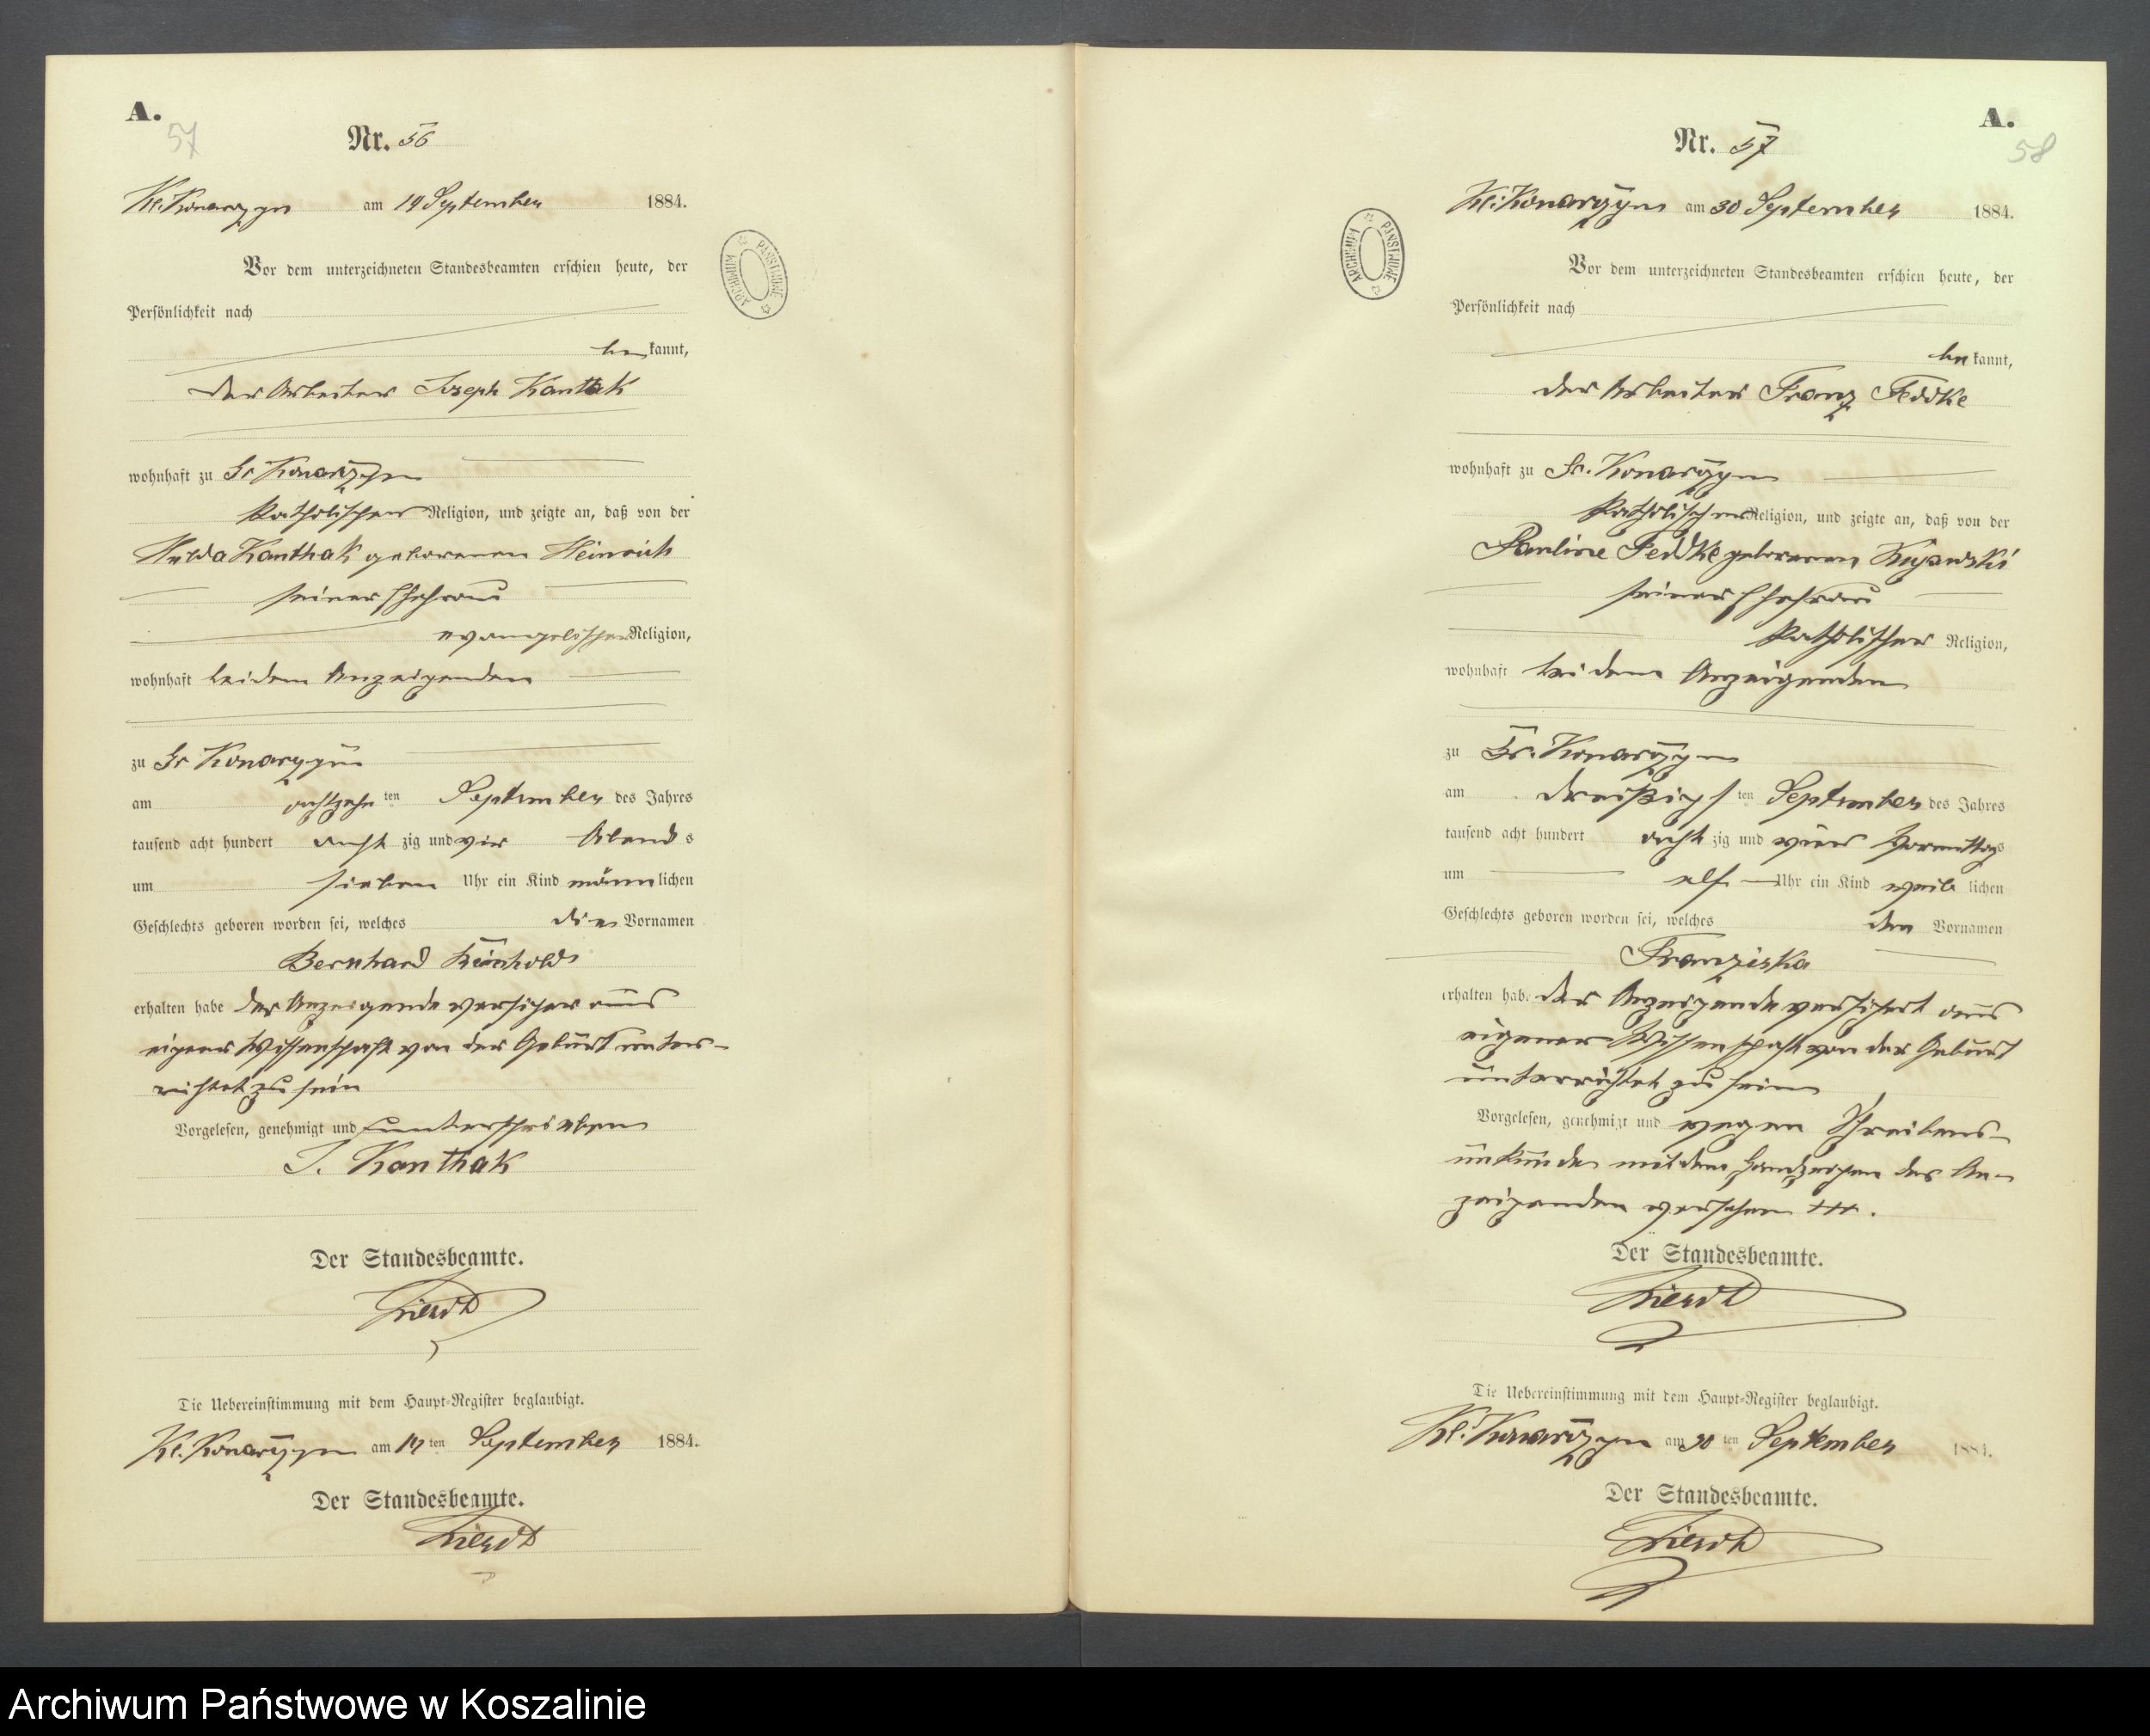 A.
57
Nr. 56
Kl. Konarzyn am 19 September 1884.
Vor dem unterzeichneten Standesbeamten erschien heute, der
Persönlichkeit nach
be kannt,
der Arbeiter Joseph Kanthak
wohnhaft zu Gr Konarzyn
katholischer Religion, und zeigte an, daß von der
Hulda Kanthak geborenen Heinrich
seiner Ehefrau
evangelischer Religion,
wohnhaft bei dem Anzeigenden
zu Gr Konarzyn
am achtzehn ten September des Jahres
tausend acht hundert acht zig und vier Abend s
um sieben Uhr ein Kind männ lichen
Geschlechts geboren worden sei, welches die Vornamen
Bernhard Reinhold
erhalten habe der Anzeigende versichert aus
eigner Wissenschaft von der Geburt unter-
richtet zu sein
Vorgelesen, genehmigt und unterschrieben
J. Kanthak
Der Standesbeamte.
Die Uebereinstimmung mit dem Haupt-Register beglaubigt.
Kl. Konarzyn am 19 ten September 1884.
Der Standesbeamte.
ARCHIWUM PAŃSTWOWE
A.
58
Nr. 57
Kl. Konarzyn am 30 September 1884.
Vor dem unterzeichneten Standesbeamten erschien heute, der
Persönlichkeit nach
be kannt,
der Arbeiter Franz Feddke
wohnhaft zu Gr. Konarzyn
katholischer Religion, und zeigte an, daß von der
Pauline Feddke geborenen Kujawski
seiner Ehefrau
katholischer Religion,
wohnhaft bei dem Anzeigenden
zu Gr. Konarzyn
am dreißigs ten September des Jahres
tausend acht hundert acht zig und vier Vormittags
um elf Uhr ein Kind weib lichen
Geschlechts geboren worden sei, welches den Vornamen
Franziska
erhalten habe der Anzeigende versichert aus
eigener Wissenschaft von der Geburt
unterrichtet zu sein
Vorgelesen, genehmigt und wegen Schreibens-
unkunde mit dem Handzeichen des An-
zeigenden versehen +++.
Der Standesbeamte.
Die Uebereinstimmung mit dem Haupt-Register beglaubigt.
Kl. Konarzyn am 30 ten September 1884.
Der Standesbeamte.
ARCHIWUM PAŃSTWOWE
Archiwum Państwowe w Koszalinie